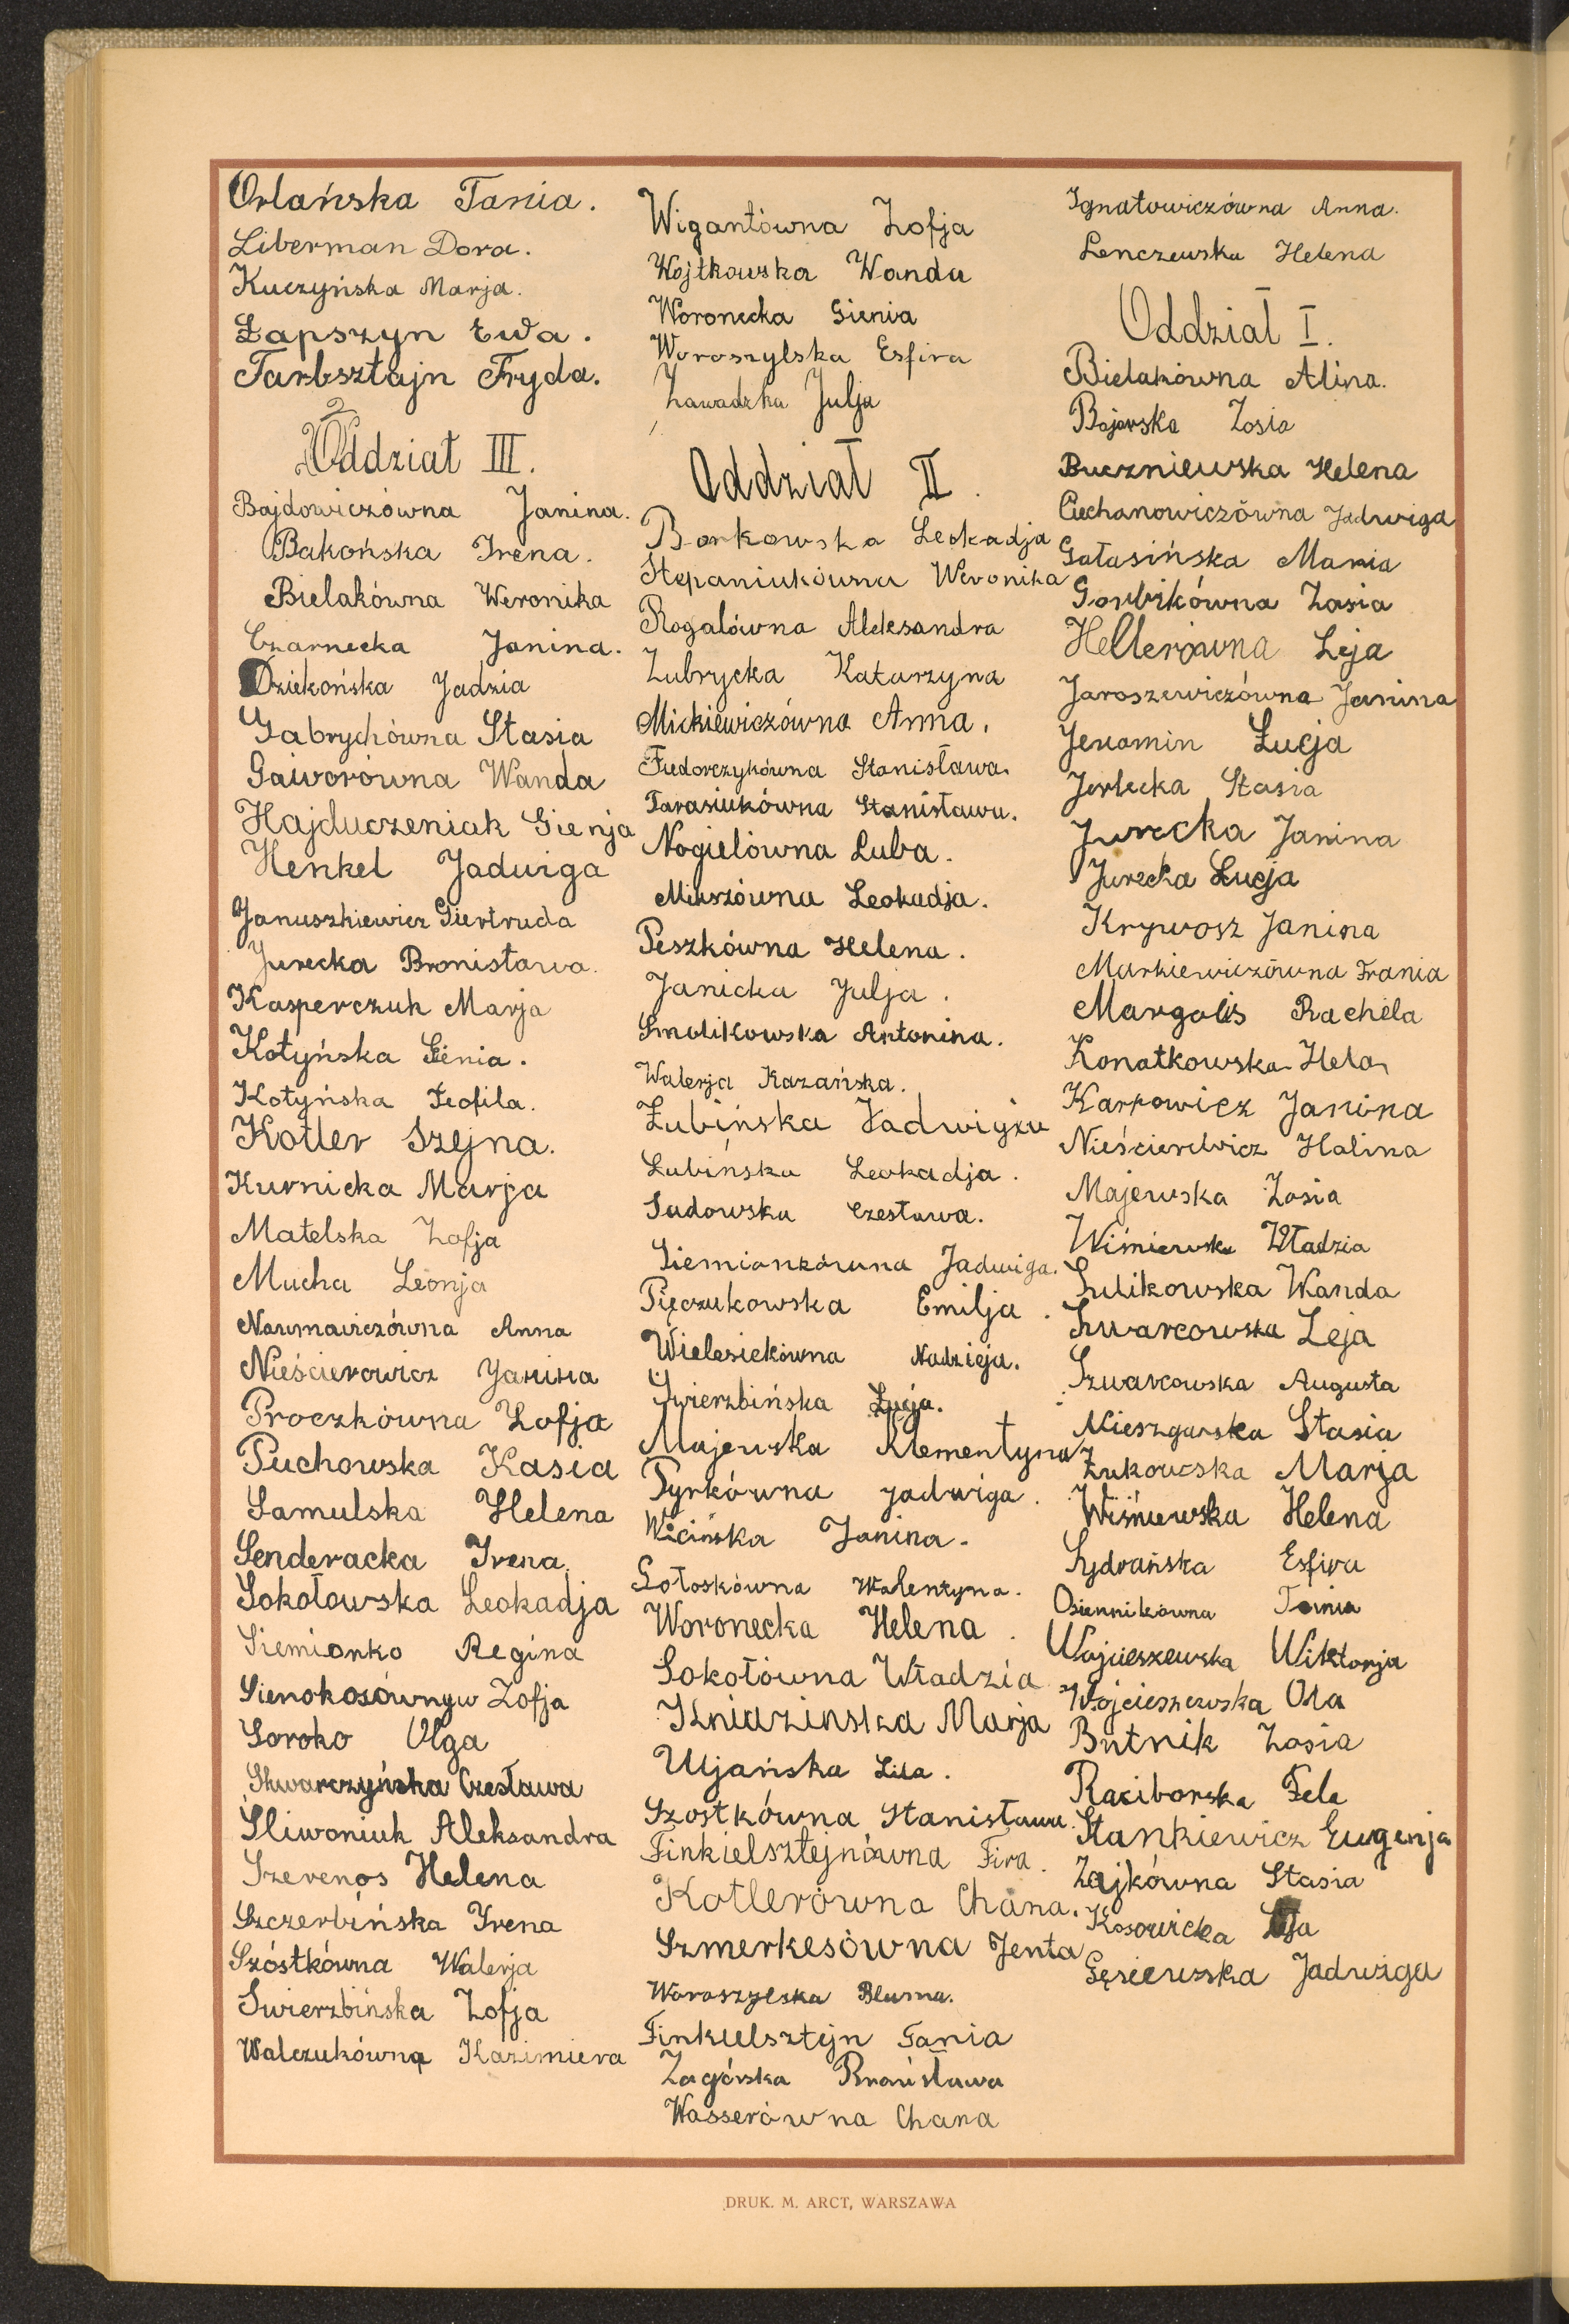 Orlańska Tania.
Liberman Dora.
Kuczyńska Marja.
Łapszyn Ewa.
Farbsztajn Fryda.
Oddział III.
Bajdowiczówna Janina.
Bakońska Irena.
Bielakówna Weronika
Czarnecka Janina.
Dziekońska Jadzia
Gabrychówna Stasia
Gaworówna Wanda
Hajduczeniak Gienja
Henkel Jadwiga
Januszkiewicz Giertruda
Jurecka Bronisława.
Kasperczuk Marja
Kotyńska Gienia.
Kotyńska Teofila.
Kotler Szejna.
Kurnicka Marja
Matelska Zofja
Mucha Leonja
Naumowiczówna Anna
Nieścierowicz Janina
Proczkówna Zofja
Puchowska Kasia
Samulska Helena
Senderacka Irena.
Sokołowska Leokadja
Siemionko Regina
Sienokosówna Zofja
Soroko Olga
Skwarczyńska Czesława
Śliwoniuk Aleksandra
Szerenos Helena
Szczerbińska Irena
Szóstkówna Walerja
Świerzbińska Zofja
Walczukówna Kazimiera
Wigantówna Zofja
Wojtkowska Wanda
Woronecka Gienia
Woroszylska Esfira
Zawadzka Julja
Oddział II.
Borkowska Leokadja
Stepaniukówna Weronika
Rogalówna Aleksandra
Zubrycka Katarzyna
Mickiewiczówna Anna.
Fiedorczykówna Stanisława.
Tarasiukówna Stanisława.
Nogielówna Luba.
Mikszówna Leokadja.
Peszkówna Helena.
Janicka Julja.
Smolikowska Antonina.
Walerja Kazańska.
Łubińska Jadwiga
Łubińska Leokadja.
Sadowska Czesława.
Siemionkówna Jadwiga.
Pięczukowska Emilja.
Wielesiekówna Nadzieja.
Świerzbińska Łucja.
Majewska Klementyna
Pyrkówna Jadwiga.
Wicińska Janina.
Gołoskówna Walentyna.
Woronecka Helena.
Sokołówna Władzia
Kniazinska Marja
Ujańska Lila.
Szostkówna Stanisława.
Finkielsztejnówna Fira.
Kotlerówna Chana.
Szmerkesówna Jenta
Woroszylska Bluma.
Finkielsztejn Tania
Zagórska Bronisława
Wasserówna Chana
Ignatowiczówna Anna.
Lenczewska Helena
Oddział I.
Bielakówna Alina.
Bojarska Zosia
Buczniewska Helena
Ciechanowiczówna Jadwiga
Gałasińska Maria
Gorbikówna Zosia
Hellerówna Leja
Jaroszewiczówna Janina
Jeromin Łucja
Jerlecka Stasia
Jurecka Janina
Jurecka Łucja
Krywosz Janina
Markiewiczówna Frania
Margolis Rachela
Konatkowska Hela
Karpowicz Janina
Nieścierowicz Halina
Majewska Zosia
Wiśniewska Władzia
Sulikowska Wanda
Szwarcowska Leja
Szwarcowska Augusta
Mieszgarska Stasia
Żukowska Marja
Wiśniewska Helena
Sydrańska Esfira
Osiennikówna Tania
Wojcieszewska Wiktorja
Wojcieszewska Ola
Butnik Zosia
Raciborska Fela
Stankiewicz Eugenja
Zajkówna Stasia
Kosowicka
Gęsiewska Jadwiga
DRUK. M. ARCT, WARSZAWA